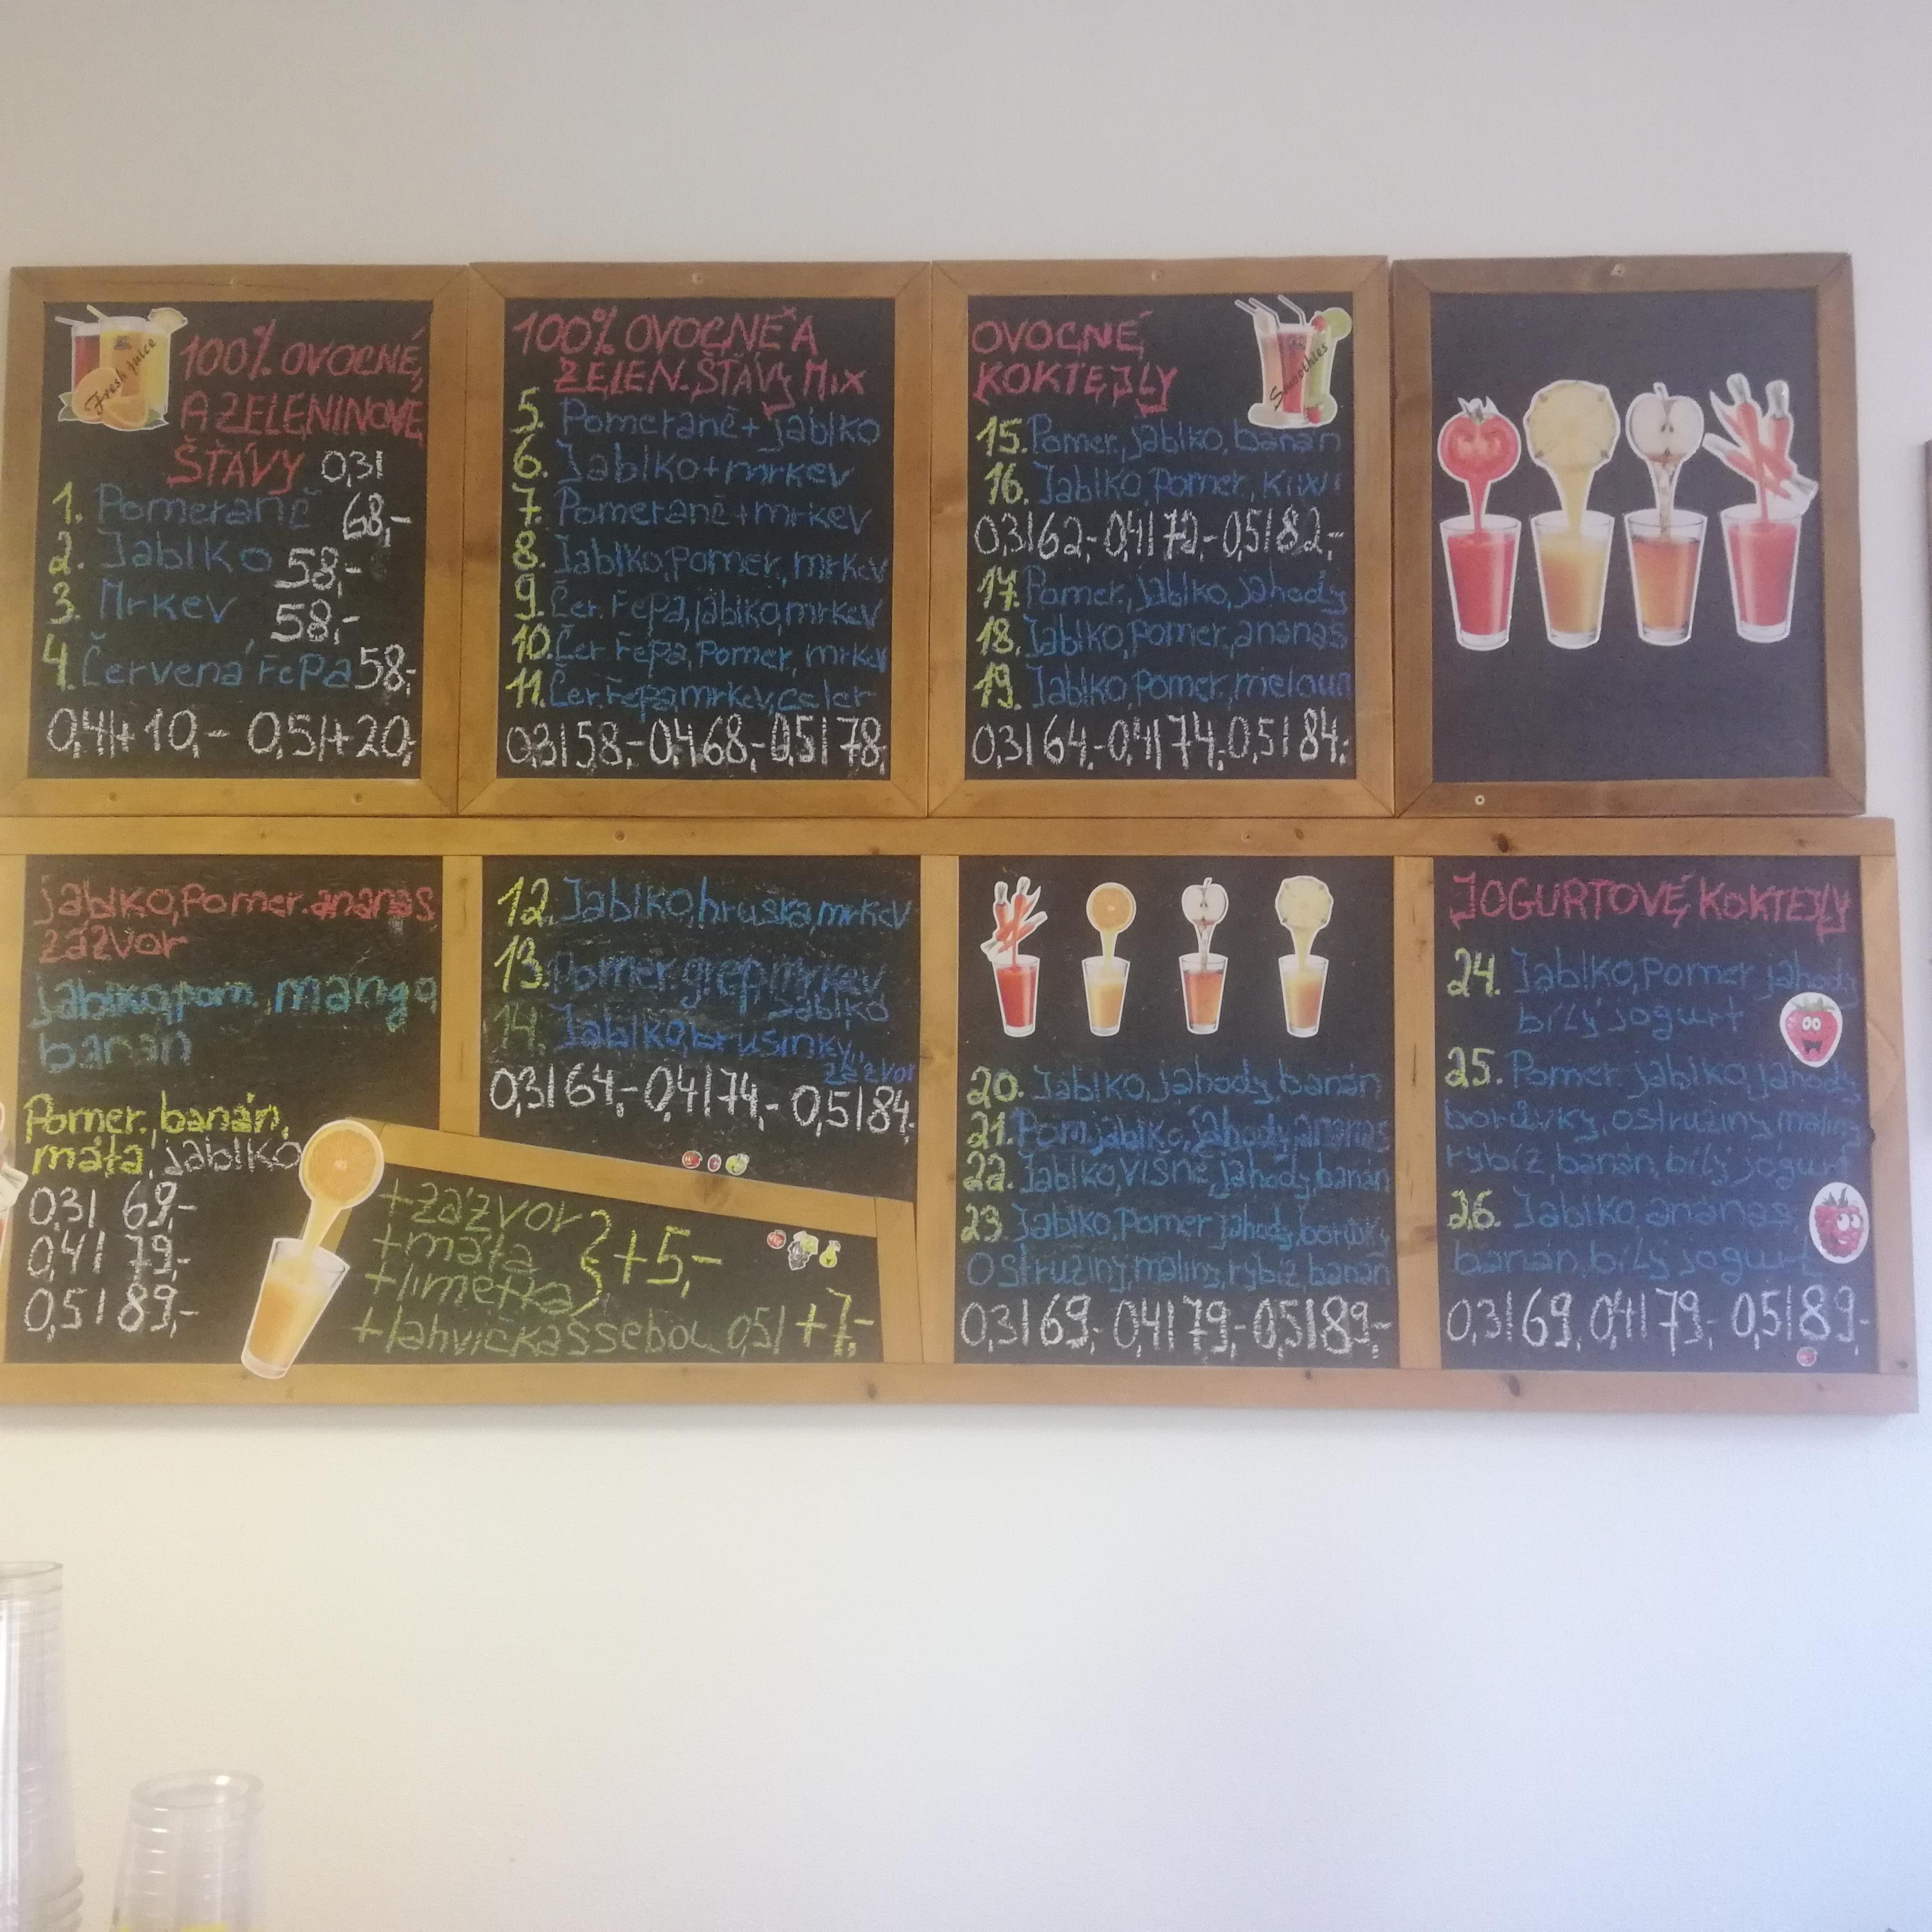 Fresh juice
100% OVOCNÉ
A ZELENINOVÉ
ŠŤÁVY 0,3l
1. Pomeranč 68,-
2. Jablko 58,-
3. Mrkev 58,-
4. Červená řepa 58,-
0,4l+10,- 0,5l+20,-
100% OVOCNÉ A
ZELEN. ŠŤÁVY MIX
5. Pomeranč + jablko
6. Jablko + mrkev
7. Pomeranč + mrkev
8. Jablko, pomer, mrkev
9. Čer. řepa, jablko, mrkev
10. Čer řepa, pomer, mrkev
11. Čer. řepa, mrkev, celer
0,3l 58,- 0,4 68,- 0,5l 78,-
OVOCNÉ
KOKTEJLY
Smoothies
15. Pomer, jablko, banán
16. Jablko, pomer, kiwi
0,3l 62,- 0,4l 72,- 0,5l 82,-
17. Pomer, jablko, jahody
18. Jablko, pomer, ananas
19. Jablko, pomer, meloun
0,3l 64,- 0,4l 74,- 0,5l 84,-
jablko, Pomer. ananas,
zázvor
jablko, pom. mango,
banán
Pomer., banán,
máta, jablko
0,3l 69,-
0,4l 79,-
0,5l 89,-
12. Jablko, hruška, mrkev
13. Pomer, grep, mrkev
jablko
14. Jablko, brusinky,
zázvor
0,3l 64,- 0,4l 74,- 0,5l 84,-
+zázvor
+máta
+limetka
+5,-
+lahvička s sebou 0,5l +7,-
20. Jablko, jahody, banán
21. Pom, jablko, jahody, ananas
22. Jablko, višně, jahody, banán
23. Jablko, Pomer, jahody, borůvky
Ostružiny, maliny, rybíz, banán
0,3l 69,- 0,4l 79,- 0,5l 89,-
JOGURTOVÉ KOKTEJLY
24. Jablko, pomer, jahody
bílý jogurt
25. Pomer, jablko, jahody
borůvky, ostružiny, maliny
rybíz, banán, bílý jogurt
26. Jablko, ananas,
banán, bílý jogurt
0,3l 69, 0,4l 79,- 0,5l 89,-